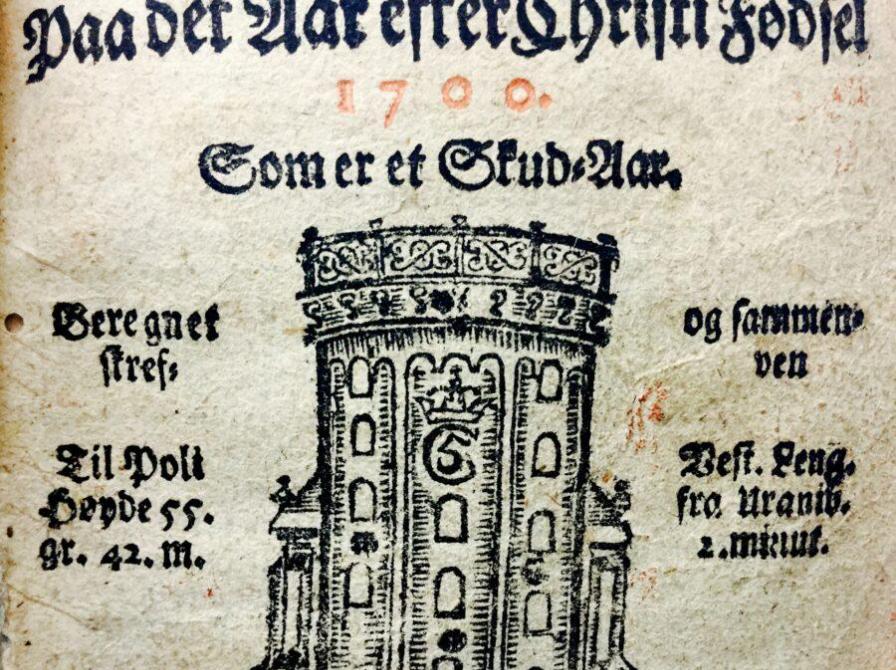 Paa det Aar efter Christi Fødsel
1700.
Som er et Skud-Aar.
Beregnet
skref-
og sammen-
ven
Til Poli
Høyde 55.
gr. 42. m.
Vest. Leng.
fra Uranib.
2. minut.